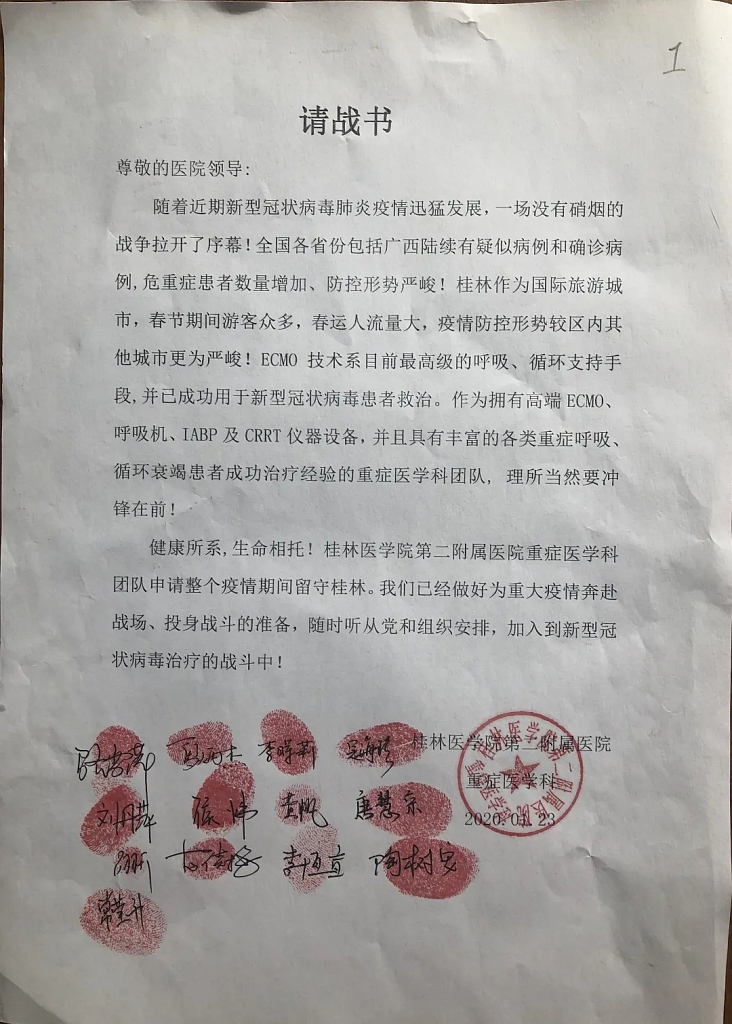 1
请战书
尊敬的医院领导:
随着近期新型冠状病毒肺炎疫情迅猛发展,一场没有硝烟的
战争拉开了序幕!全国各省份包括广西陆续有疑似病例和确诊病
例,危重症患者数量增加、防控形势严峻!桂林作为国际旅游城
市,春节期间游客众多,春运人流量大,疫情防控形势较区内其
他城市更为严峻!ECMO 技术系目前最高级的呼吸、循环支持手
段,并已成功用于新型冠状病毒患者救治。作为拥有高端 ECMO、
呼吸机、IABP 及 CRRT 仪器设备,并且具有丰富的各类重症呼吸、
循环衰竭患者成功治疗经验的重症医学科团队, 理所当然要冲
锋在前!
健康所系,生命相托!桂林医学院第二附属医院重症医学科
团队申请整个疫情期间留守桂林。我们已经做好为重大疫情奔赴
战场、投身战斗的准备,随时听从党和组织安排,加入到新型冠
状病毒治疗的战斗中!
桂林医学院第二附属医院
重症医学科
2020.01.23
刘丹萍 唐慧京
李恒